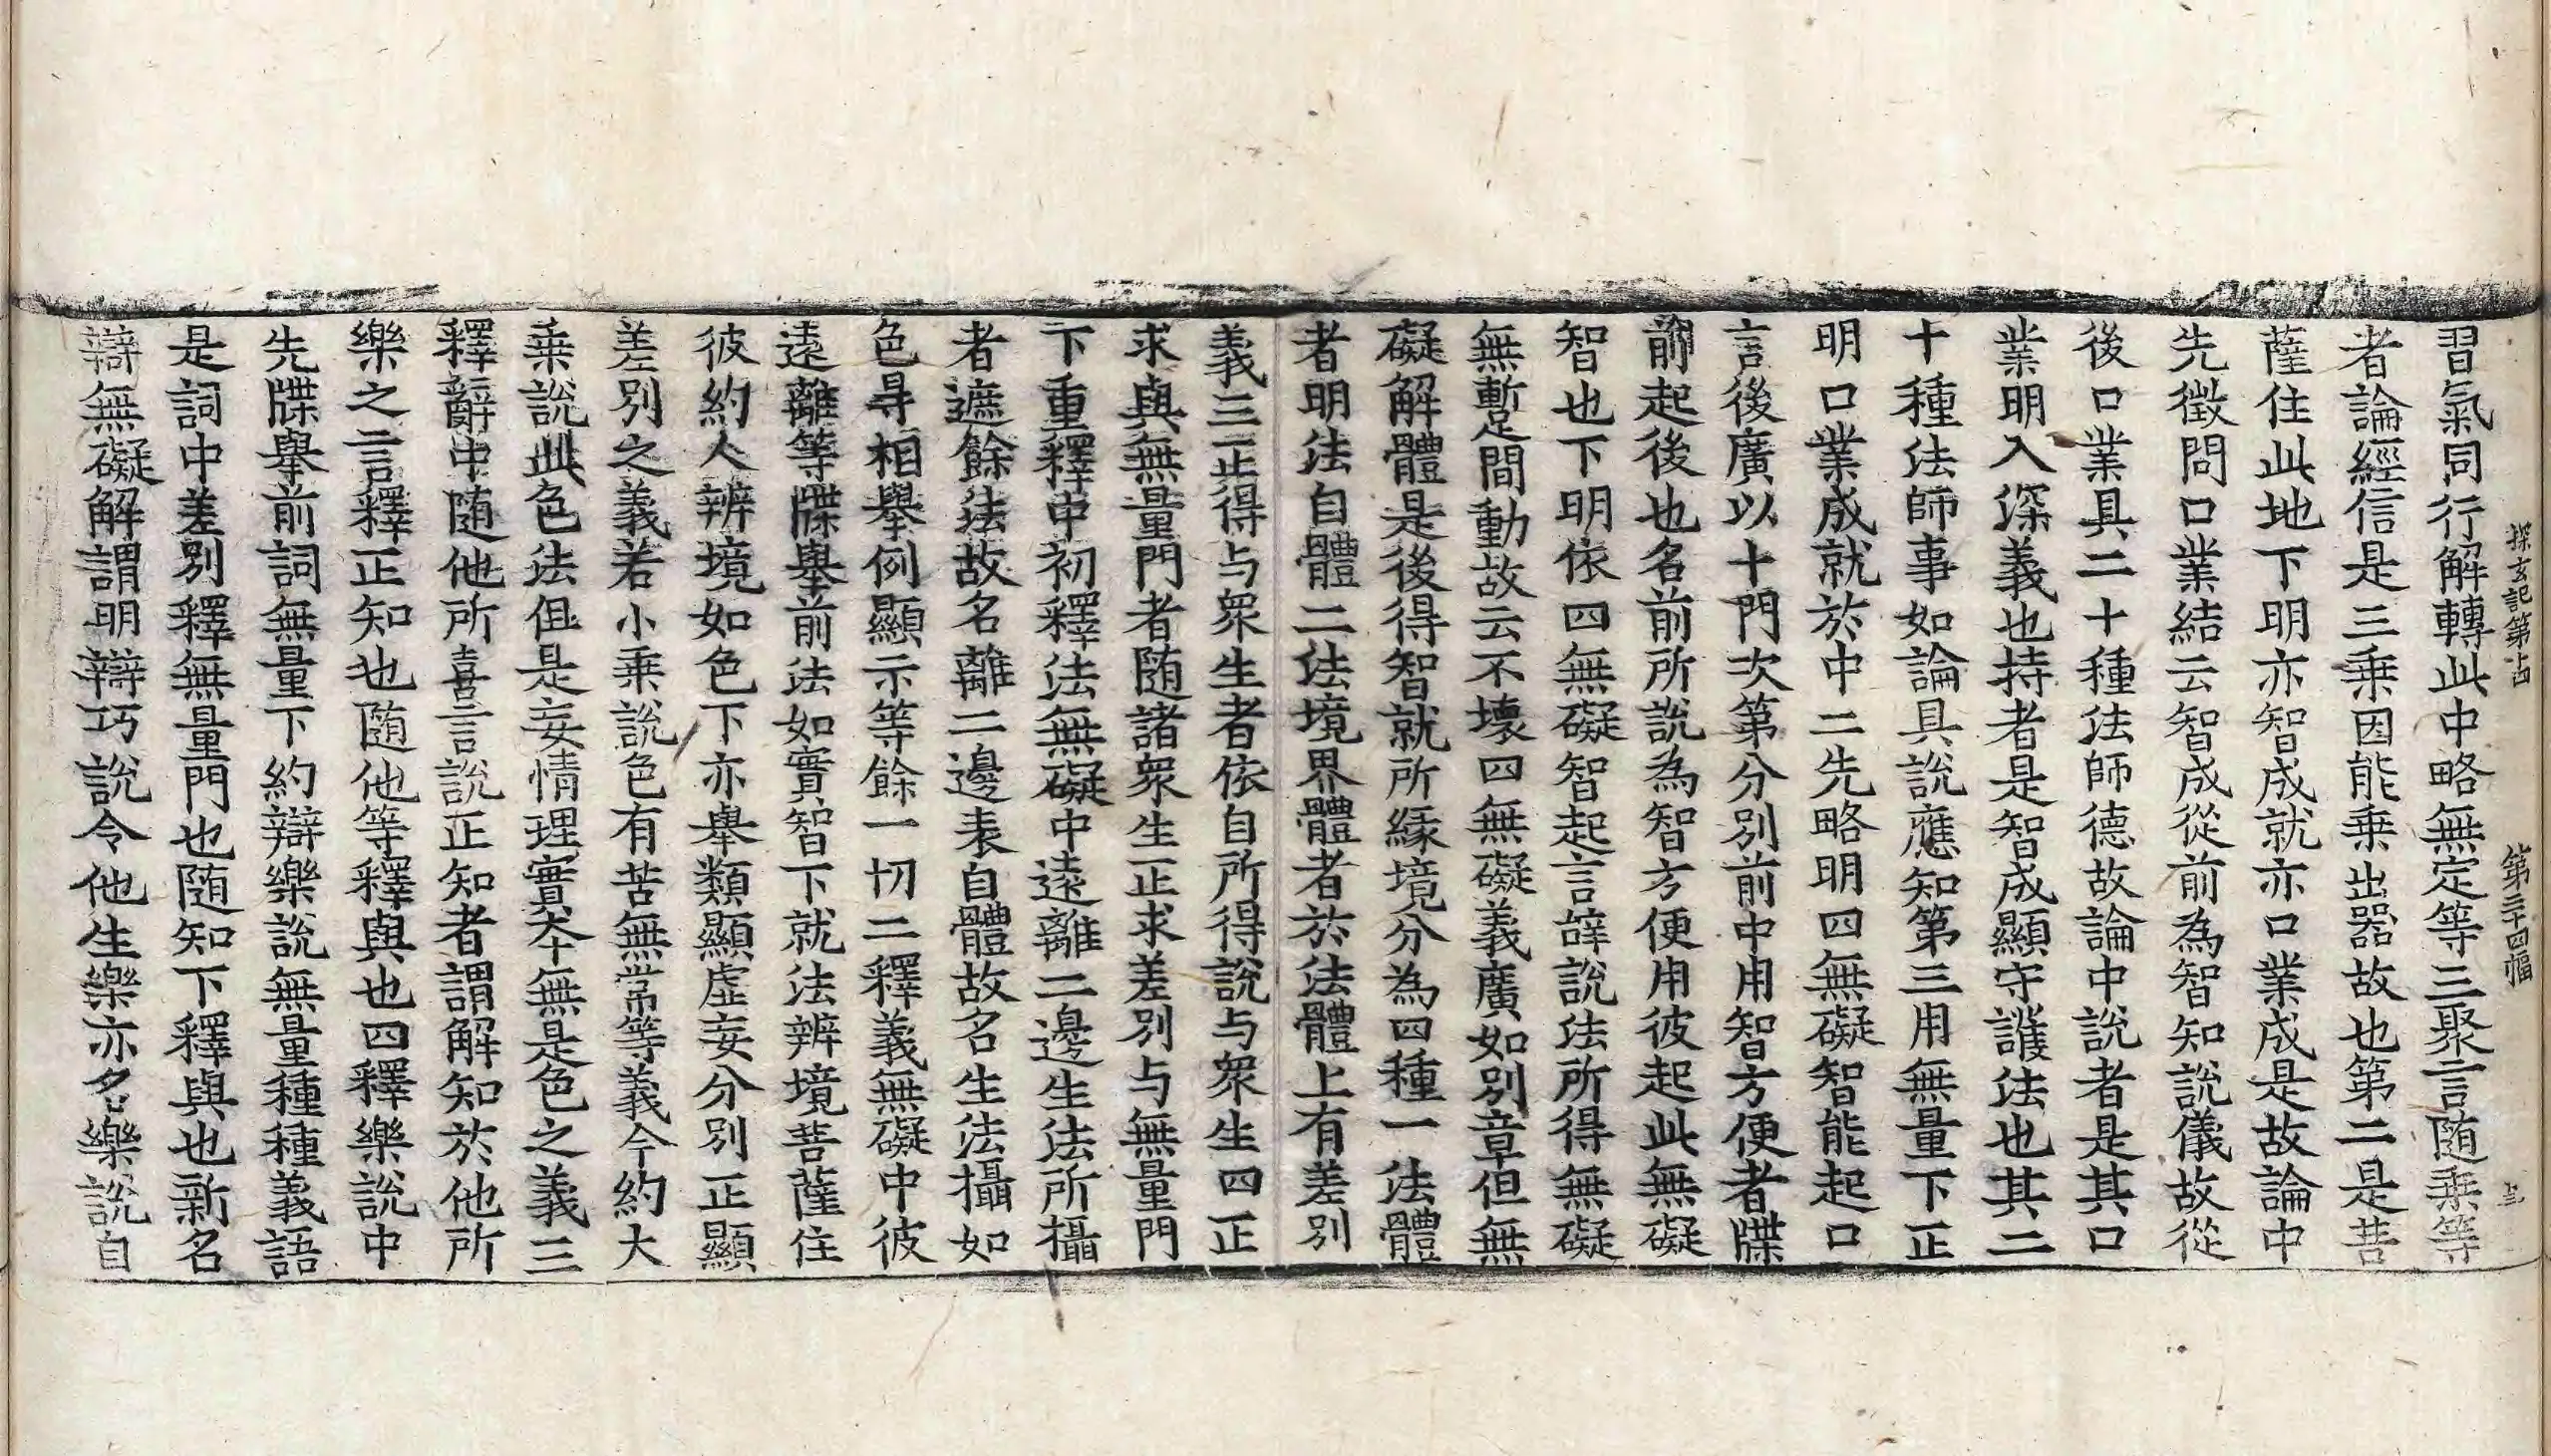 探玄記第十四　第三十四幅
習氣同行解轉此中略無定等三聚言随乗等
者論經信是三乗因能乗出器故也第二是菩
薩住此地下明亦智成就亦口業成是故論中
先徴問口業結云智成從前為智知說儀故從
後口業具二十種法師德故論中說者是其口
業明入深義也持者是智成顯守護法也其二
十種法師事如論具說應知第三用無量下正
明口業成就於中二先略明四無礙智能起口
言後廣以十門次第分別前中用智方便者牒
前起後也名前所說為智方便用彼起此無礙
智也下明依四無礙智起言辝說法所得無礙
無暫間動故云不壞四無礙義廣如別章但無
礙解體是後得智就所縁境分為四種一法體
者明法自體二法境界體者於法體上有差別
義三正得与衆生者依自所得說与衆生四正
求與無量門者随諸衆生正求差別与無量門
下重釋中初釋法無礙中遠離二邊生法所攝
者遮餘法故名離二邊表自體故名生法攝如
色㝵相舉例顯示等餘一切二釋義無礙中彼
遠離等牒舉前法如實智下就法辨境菩薩住
彼約人辨境如色下亦舉類顯虛妄分別正顯
差別之義若小乗說色有苦無常等義今約大
乗說此色法但是妄情理實夲無是色之義三
釋辭中随他所喜言說正知者謂解知於他所
樂之言釋正知也随他等釋與也四釋樂說中
先牒舉前詞無量下約辯樂說無量種種義語
是詞中差別釋無量門也随知下釋與也新名
辯無礙解謂明辯巧說令他生樂亦名樂說自